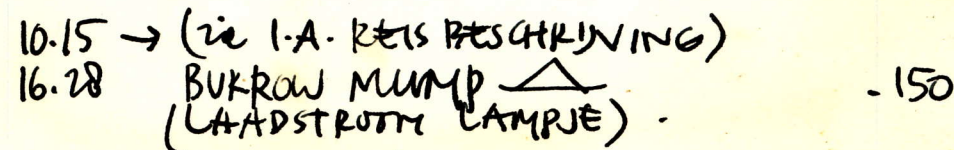 10.15 → (zie I.A. REISBESCHRIJVING)
16.28 BURROW MUMP - 150
(LAADSTROOM LAMPJE).